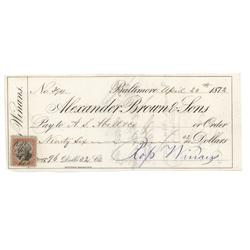 No. 
Baltimore, April 20th 1872
Alexander Brown & Sons
Pay to A. S. Abell & Co or Order
Ninety six 02/100 Dollars
$96 Dolls 02 Cts. Ross Winans
Winans.